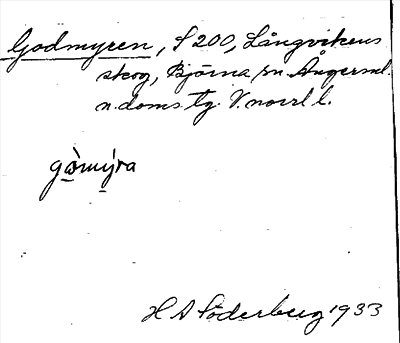 Godmyren, S 200, Långvikens
skog, Björna sn. Ångerml.
n. doms tg. V. norrl l.
gòmýra
H A Söderberg 1933